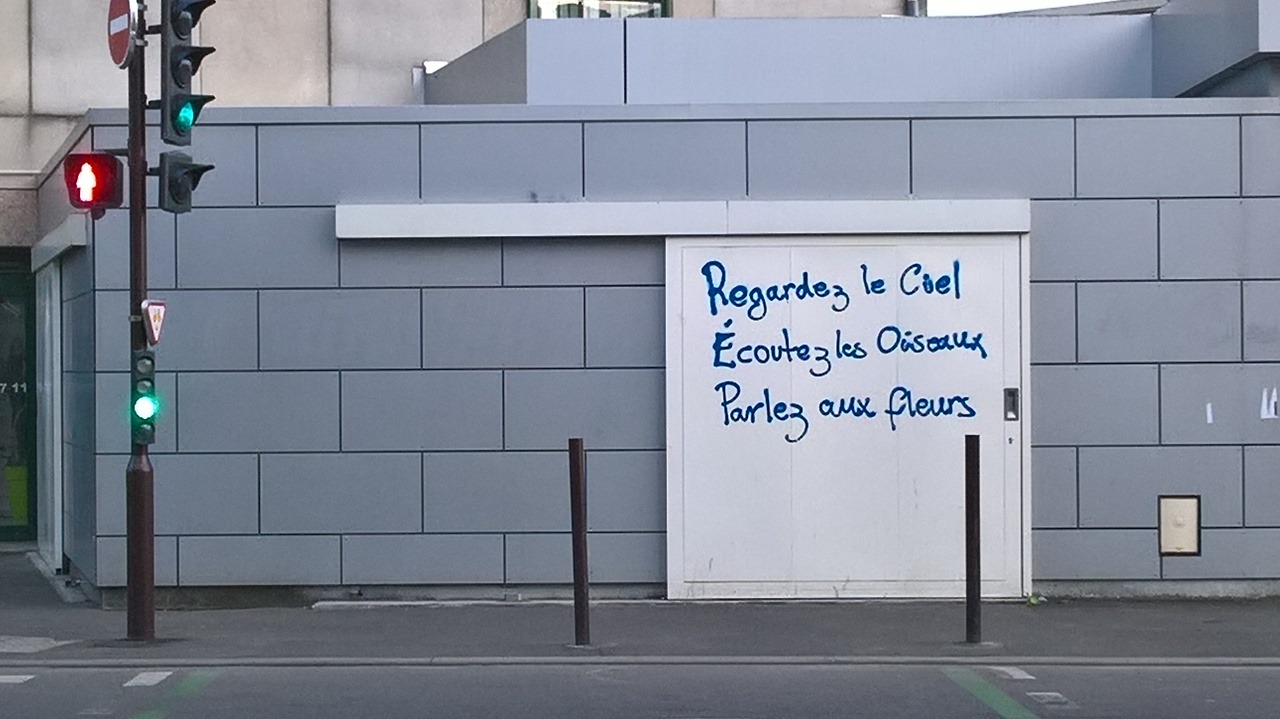 Regardez le Ciel
Écoutez les Oiseaux
Parlez aux fleurs
7 11